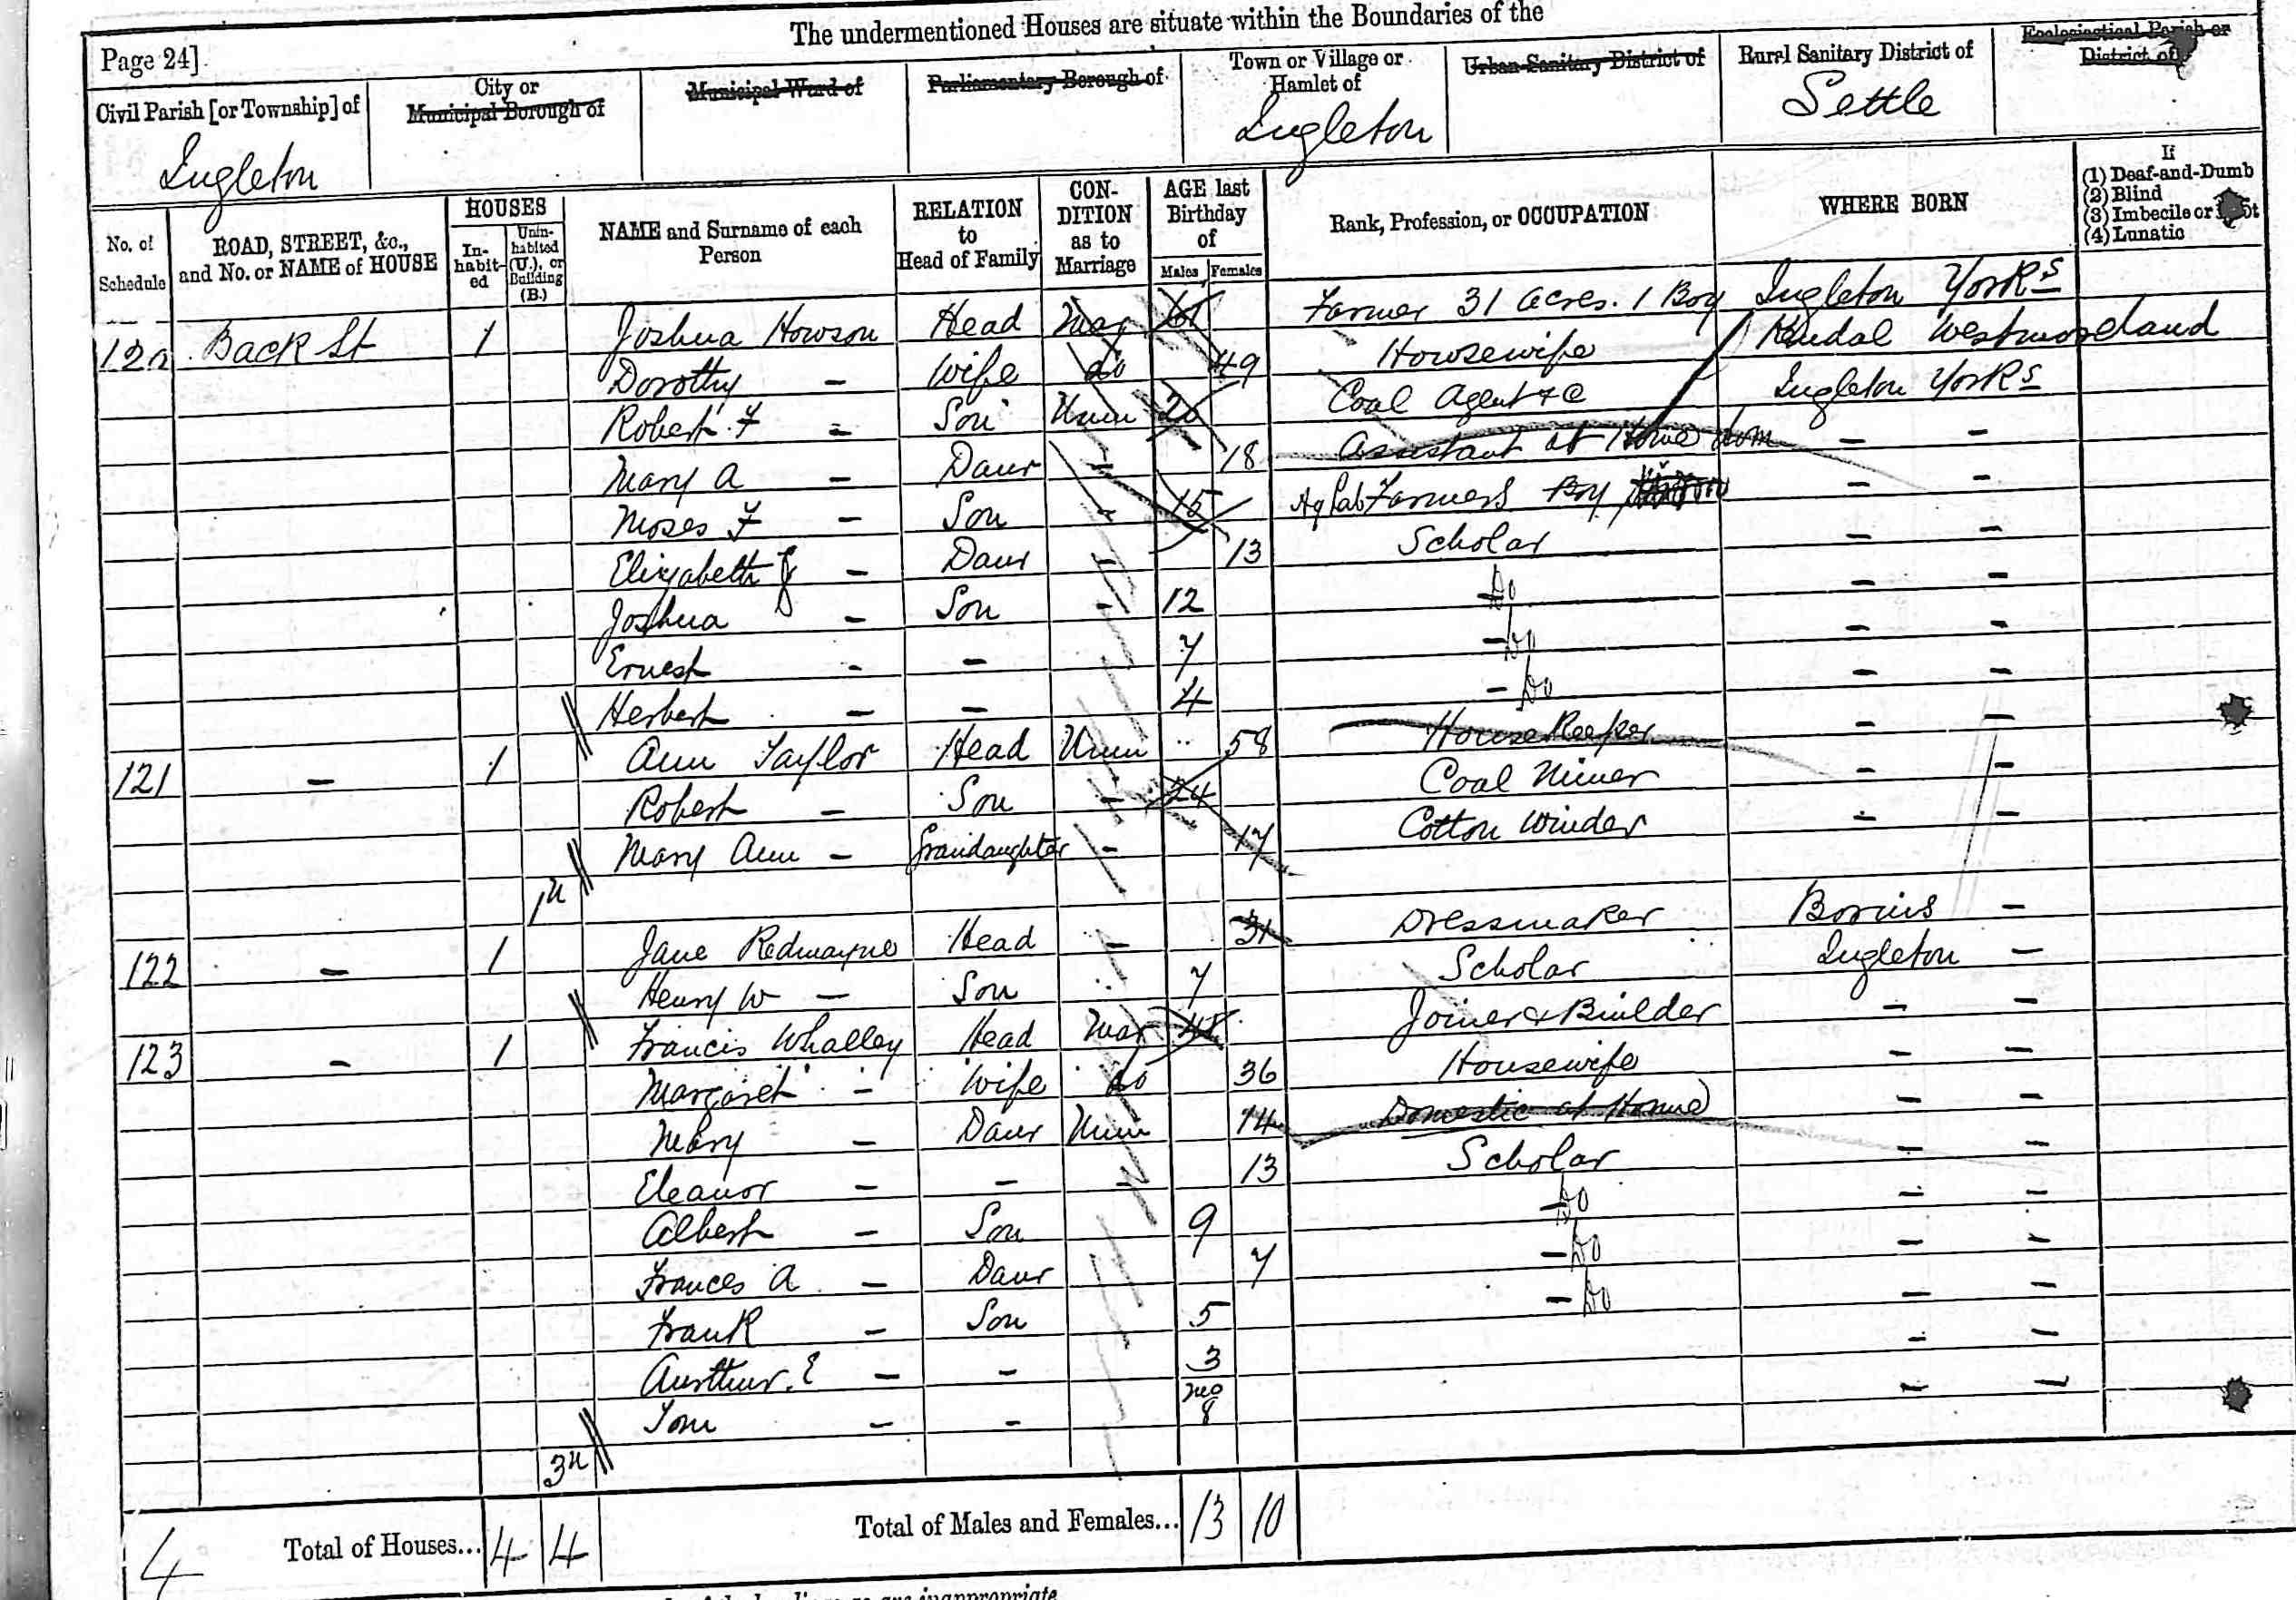 The undermentioned Houses are situate within the Boundaries of the
Page 24]
Civil Parish [or Township] of
Ingleton
City or
Municipal Borough of
Municipal Ward of
Parliamentary Borough of
Town or Village or
Hamlet of
Ingleton
Urban Sanitary District of
Rural Sanitary District of
Settle
Ecclesiastical Parish or
District of
No. of Schedule
ROAD, STREET, &c., and No. or NAME of HOUSE
HOUSES
In-habit-ed
Unin-habited (U.), or Building (B.)
NAME and Surname of each Person
RELATION to Head of Family
CON-DITION as to Marriage
AGE last Birthday of
Males
Females
Rank, Profession, or OCCUPATION
WHERE BORN
If
(1) Deaf-and-Dumb
(2) Blind
(3) Imbecile or Idiot
(4) Lunatic
120 Back St 1 Joshua Howson Head Mar 61 Farmer 31 acres. 1 Boy Ingleton Yorks
Dorothy – Wife do 49 Housewife Kendal Westmoreland
Robert F – Son Unm 20 Coal Agent &c Ingleton Yorks
Mary A – Daur – 18 Assistant at Home dom – –
Moses F – Son – 15 Ag Lab Farmers Boy – –
Elizabeth J – Daur – 13 Scholar – –
Joshua – Son – 12 – Do – –
Ernest – – 7 – Do – –
Herbert – – 4 – Do – –
121 – 1 Ann Taylor Head Unm 58 House Keeper – –
Robert – Son – 24 Coal Miner – –
Mary Ann – Grandaughter – 17 Cotton Winder – –
1u
122 – 1 Jane Redmayne Head – 31 Dressmaker –
Henry W – Son 7 Scholar Ingleton –
123 – 1 Francis Whalley Head Mar Joiner & Builder – –
Margaret – Wife do 36 Housewife – –
Mary – Daur Unm 14 Domestic at Home – –
Eleanor – – – 13 Scholar – –
Albert – Son 9 – Do – –
Frances A – Daur 7 – Do – –
Frank – Son 5 – Do – –
Aurthur. E – – 3 – –
Tom – – mo 8 – –
3u
4 Total of Houses... 4 4 Total of Males and Females... 13 10
are inappropriate.